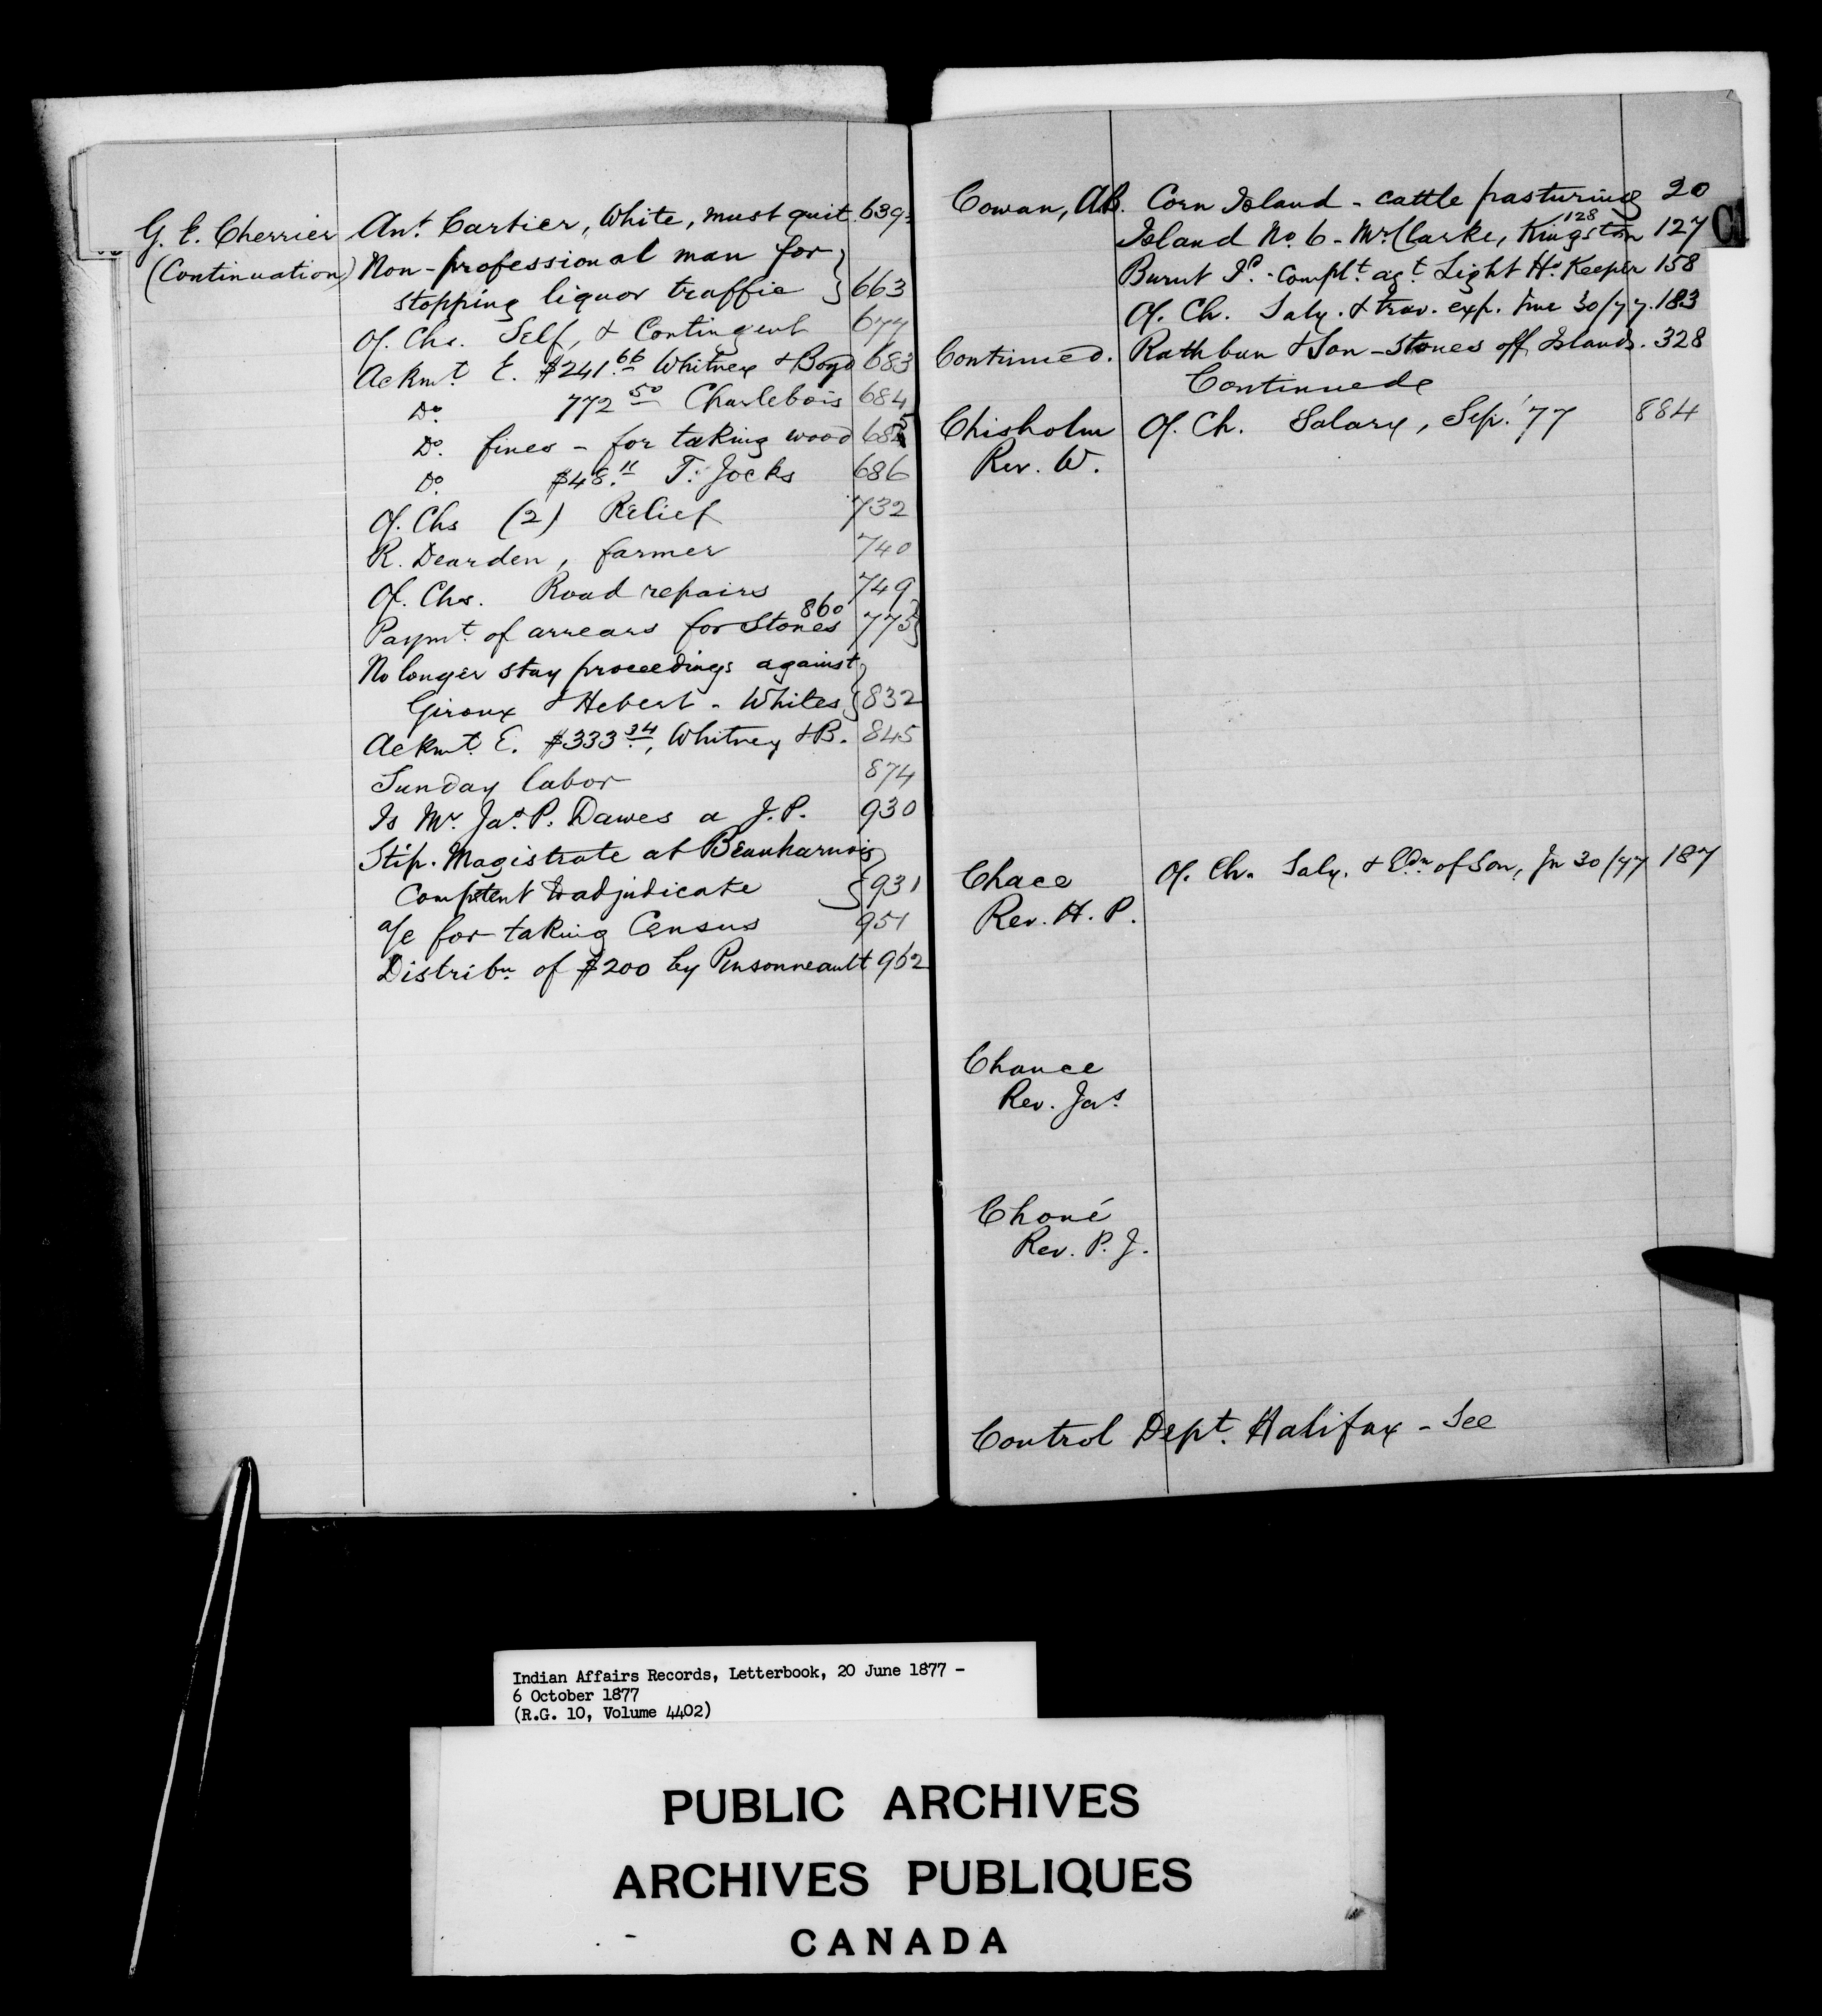 G. E. Cherrier Ant. Cartier, White, must quit. 639
(Continuation) Non-professional man for
stopping liquor traffic } 663
Of. Chs. Self, & Contingent 677
Ackmt. E. $241.66 Whitney & Boyd 683
Do 772 50 Charlebois 684
Do. fines - for taking wood 685
Do $48.11 T. Jocks 686
Of. Chs (2) Relief 732
R. Dearden, farmer 740
Of. Chs. Road repairs 749
Paymt. of arrears for Stones 860 775}
No longer stay proceedings against
Giroux & Hebert - Whites } 832
Ackmt. E. $333.34, Whitney & B. 845
Sunday labor 874
Is Mr. Jas. P. Dawes a J.P. 930
Stip. Magistrate at Beauharnois
Competent to adjudicate } 931
a/c for taking Census 951
Distribn of $200 by Pinsonneault 962
Cowan, AB. Corn Island - cattle pasturing 20
Island No. 6 - Mr. Clarke, Kingston 128 127
Burnt Id. - Complt. agt. Light Ho. Keeper 158
Of. Ch. Saly. & trav. exp. June 30/77. 183
Continued. Rathbun & Son - Stones off Islands. 328
Continued
Chisholm Of. Ch. Salary, Sep. '77 884
Rev. W.
Chace Of. Ch. Saly. & Edn of Son, Jn 30/77 187
Rev. H. P.
Chance
Rev. Jas.
Choné
Rev. P. J.
Control Dept. Halifax - See
Cl
Indian Affairs Records, Letterbook, 20 June 1877 -
6 October 1877
(R.G. 10, Volume 4402)
PUBLIC ARCHIVES
ARCHIVES PUBLIQUES
CANADA